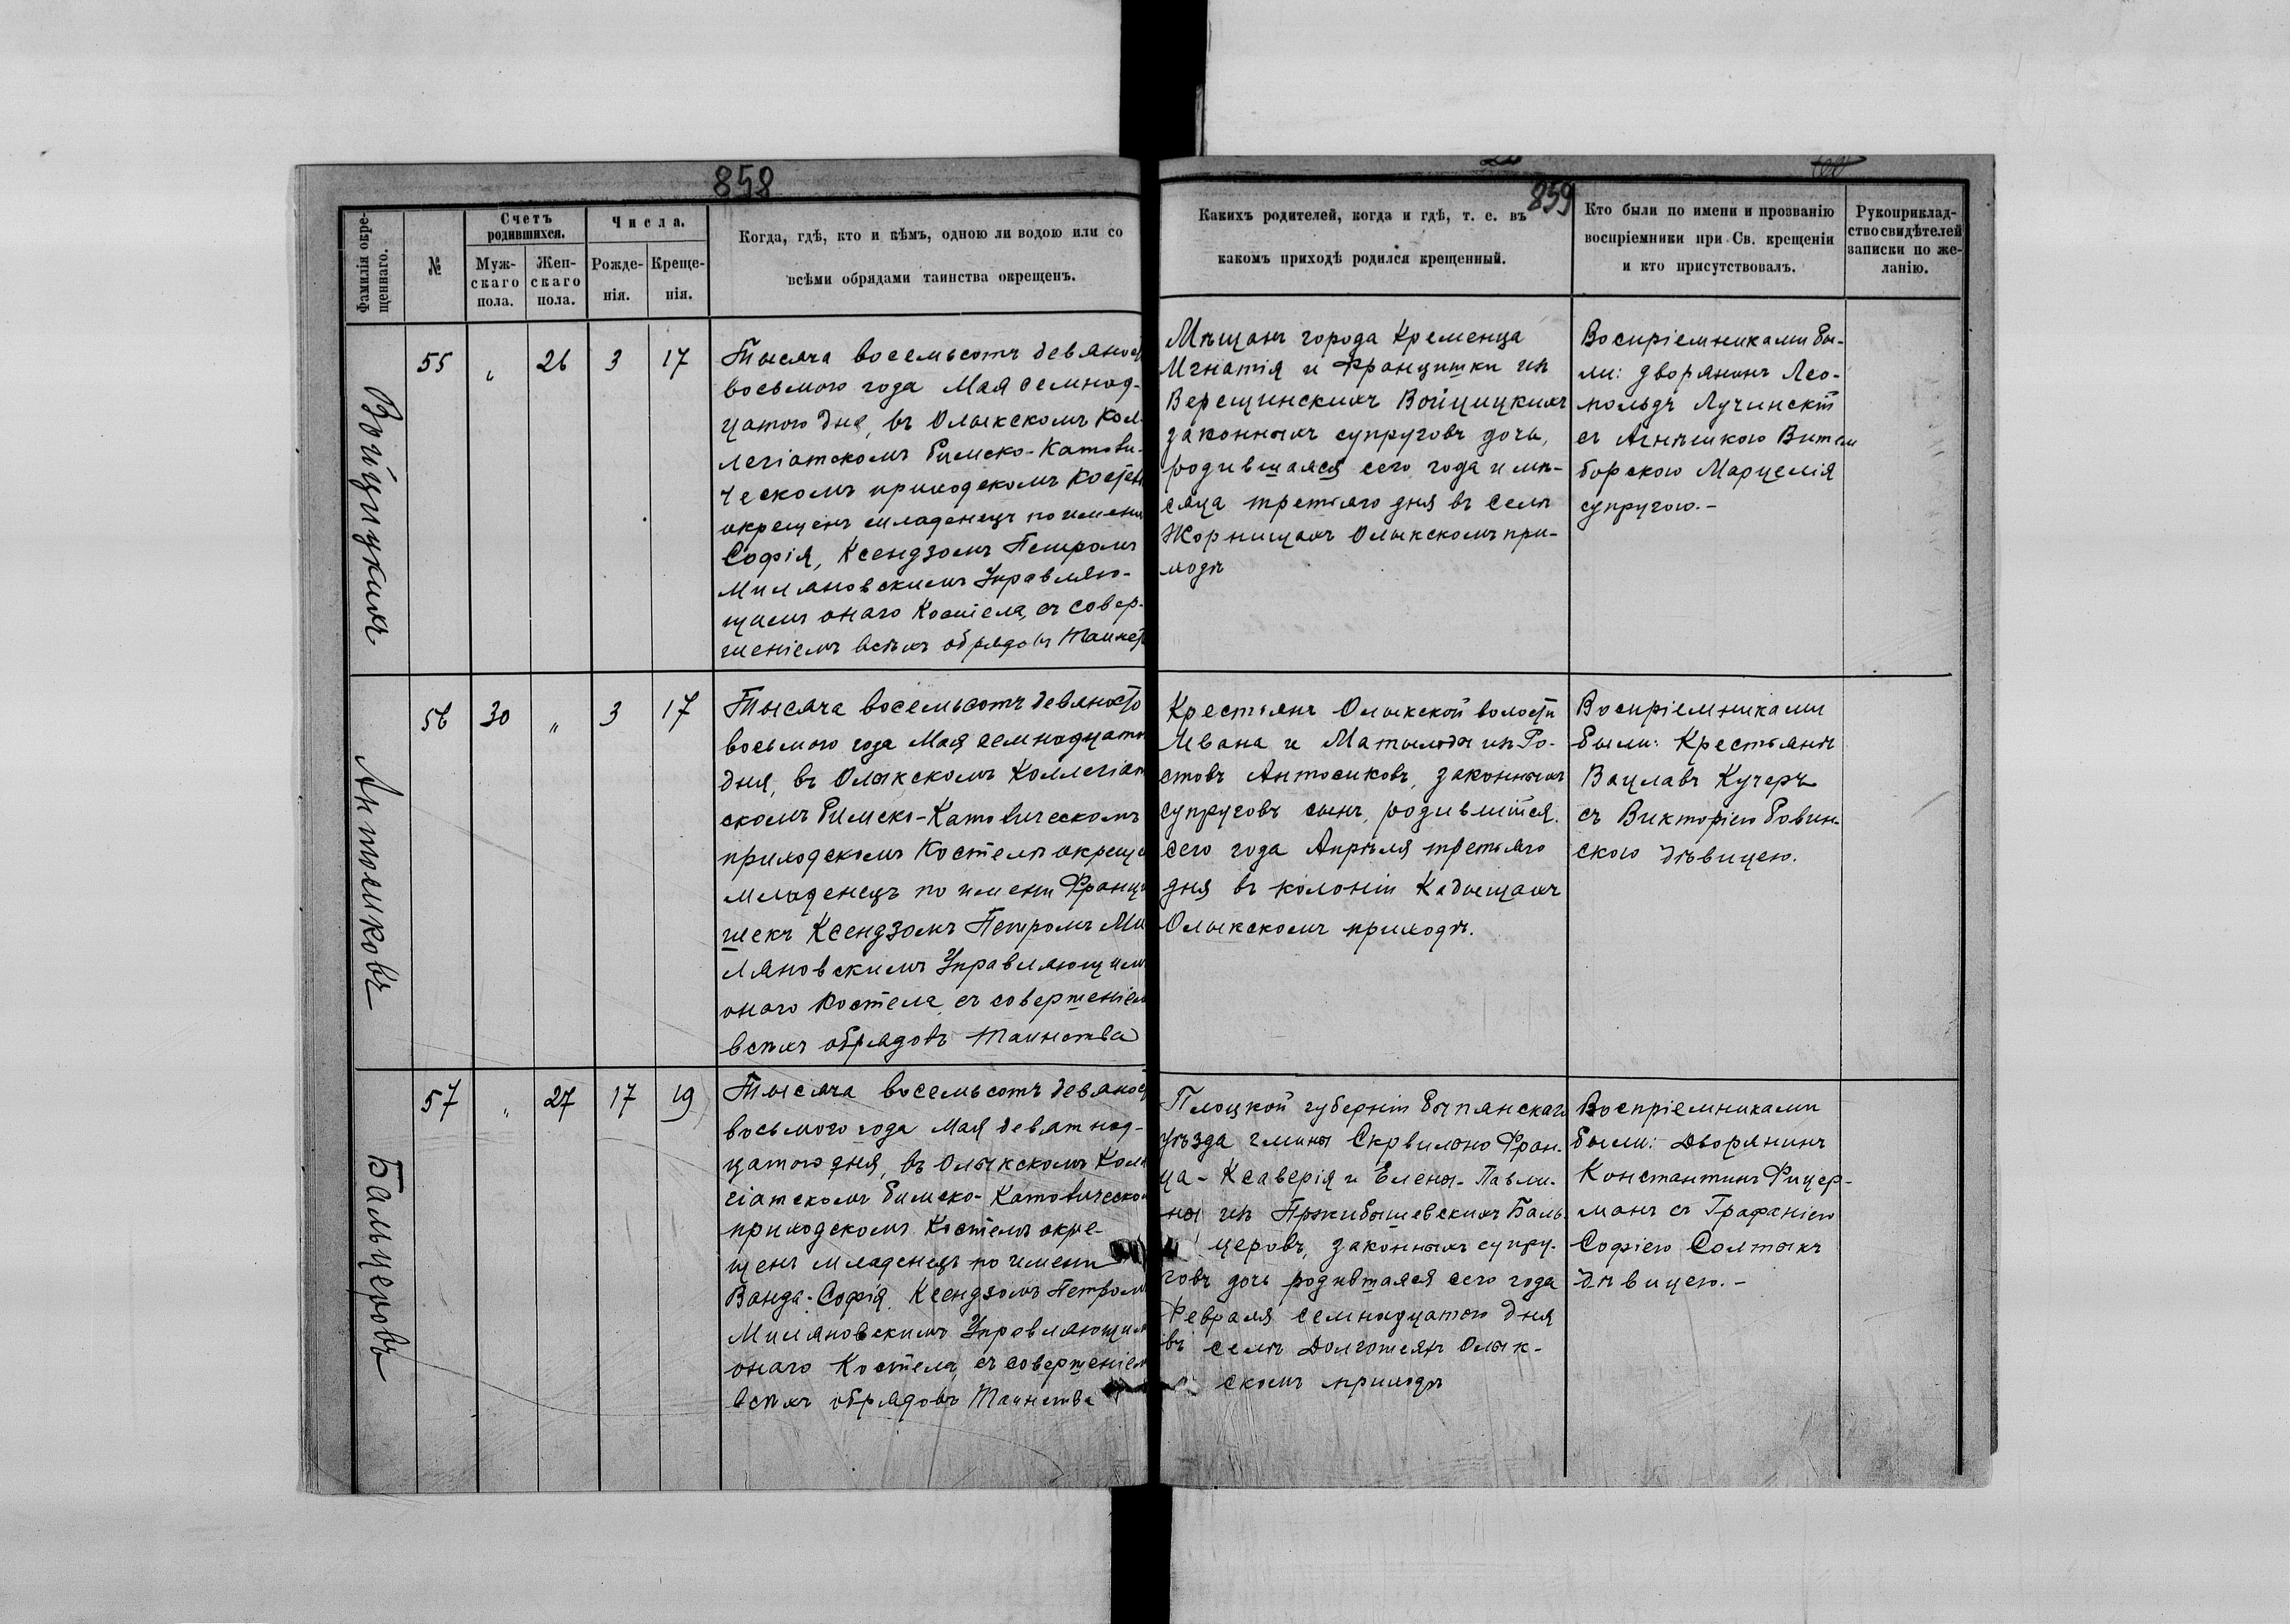 858
859
Фамилія окре-
щеннаго.
№
Счетъ
родившихся.
Муж-
скаго
пола.
Жен-
скаго
пола.
Числа.
Рожде-
нія.
Креще-
нія.
Когда, гдѣ, кто и кѣмъ, одною ли водою или со
всѣми обрядами таинства окрещенъ.
Какихъ родителей, когда и гдѣ, т. е. въ
какомъ приходѣ родился крещенный.
Кто были по имени и прозванію
воспріемники при Св. крещеніи
и кто присутствовалъ.
Рукоприклад-
ство свидѣтелей
записки по же-
ланію.
Войцицкихъ
55 „ 26 3 17
Тысяча восемьсотъ девяност
восьмого года Мая семнад-
цатого дня, въ Олыкскомъ Кол-
легіатскомъ Римско-Католи-
ческомъ приходскомъ Костел
окрещенъ младенецъ по имени
Софія, Ксендзомъ Петромъ
Миляновскимъ Управляю-
щимъ онаго Костела, съ совер-
шеніемъ всѣхъ обрядовъ Таинст
Мѣщанъ города Кременца
Игнатія и Францишки изъ
Верещинскихъ Войцицкихъ
законныхъ супруговъ дочь,
родившаяся сего года и мѣ-
сяца третьяго дня въ селѣ
Жорнищахъ Олыкскомъ при-
ходѣ
Воспріемниками бы-
ли: дворянинъ Лео-
польдъ Лучинскій
съ Агнѣшкою
борскою Марцелія
супругою.-
Антосиковъ
56 30 „ 3 17
Тысяча восемьсотъ девяносто
восьмого года Мая семнадцато
дня, въ Олыкскомъ Коллегіат
скомъ Римско-Католическомъ
приходскомъ Костелѣ окреще
младенецъ по имени Франци
шекъ Ксендзомъ Петромъ Ми
ляновскимъ Управляющим
онаго Костела, съ совершеніем
всѣхъ обрядовъ Таинства
Крестьянъ Олыкской волости
Ивана и Матыльды изъ Ро-
стовъ Антосиковъ, законныхъ
супруговъ сынъ, родившійся
сего года Апрѣля третьяго
дня въ колоніи Кадыщахъ
Олыкскомъ приходѣ.
Воспріемниками
были: Крестьянъ
Вацлавъ Кучеръ
съ Викторіею Ровин-
скою дѣвицею.
Бальцеровъ
57 „ 27 17 19
Тысяча восемьсотъ девяност
восьмого года Мая девятнад-
цатого дня, въ Олыкскомъ Колл
гіатскомъ Римско-Католическо
приходскомъ Костелѣ окре-
щенъ младенецъ по имени
Ванда-Софія, Ксендзомъ Петром
Миляновскимъ Управляющим
онаго Костела, съ совершеніем
всѣхъ обрядовъ Таинства
Плоцкой губерніи Рыпянскаго
уѣзда гмины Скрвильно Фран-
ца-Ксаверія и Елены-Павли-
ны изъ Пржибышевскихъ Баль-
церовъ, законныхъ супру-
говъ дочь родившаяся сего года
Февраля семнадцатого дня
въ селѣ Долгошеяхъ Олык-
скомъ приходѣ
Воспріемниками
были: Дворянинъ
Константинъ Фицер-
манъ съ Графинею
Софіею Солтыкъ
дѣвицею.-